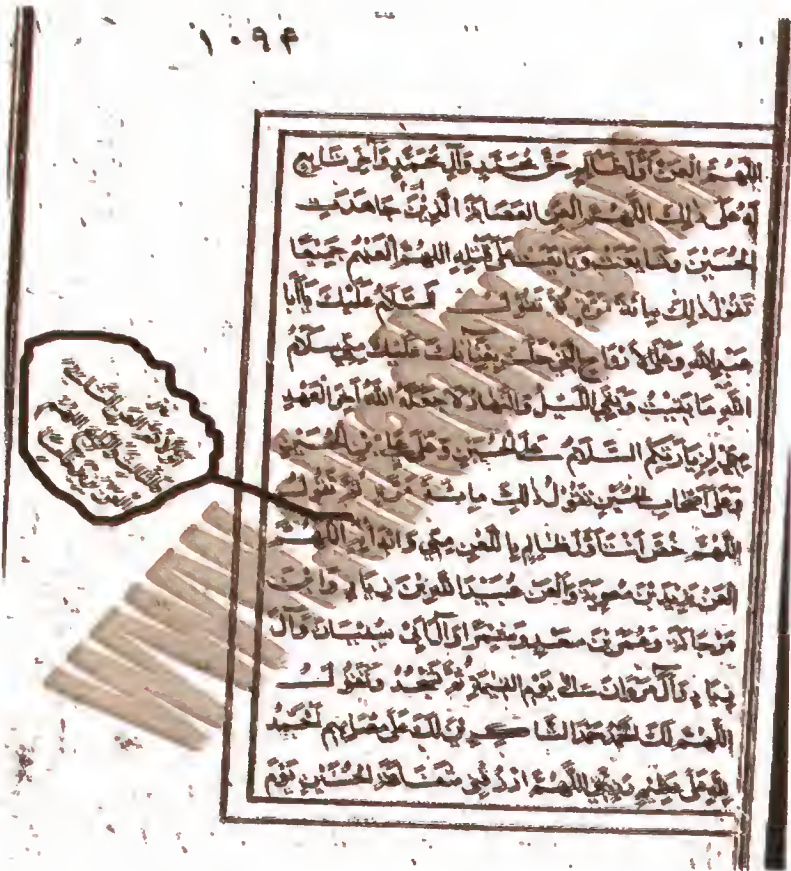 ١٠٩٤
اللهم العن اول ظالم ظلم حق محمد وآل محمد وآخر تابع
له على ذلك اللهم العن العصابة الذين جاهدت
الحسين وشايعت وبايعت على قتله اللهم العنهم جميعا
تقول ذلك مائة مرة ثم تقول السلام عليك يا أبا
عبد الله وعلى الارواح التي حلت بفنائك عليك مني سلام
الله ما بقيت وبقي الليل والنهار ولا جعله الله آخر العهد
مني لزيارتكم السلام على الحسين وعلى علي بن الحسين
وعلى أصحاب الحسين تقول ذلك مائة مرة ثم تقول
اللهم خص انت اول ظالم باللعن مني وابدأ به اولا
اللهم
العن يزيد بن معوية والعن عبيد الله بن زياد وابن
مرجانة وعمر بن سعد وشمرا وآل أبي سفيان وآل
زياد وآل مروان الى يوم القيمة ثم تسجد وتقول
اللهم لك الحمد حمد الشاكرين لك على مصابهم الحمد
لله على عظيم رزيتي اللهم ارزقني شفاعة الحسين يوم
اولا ثم العن الثاني
والثالث والرابع اللهم